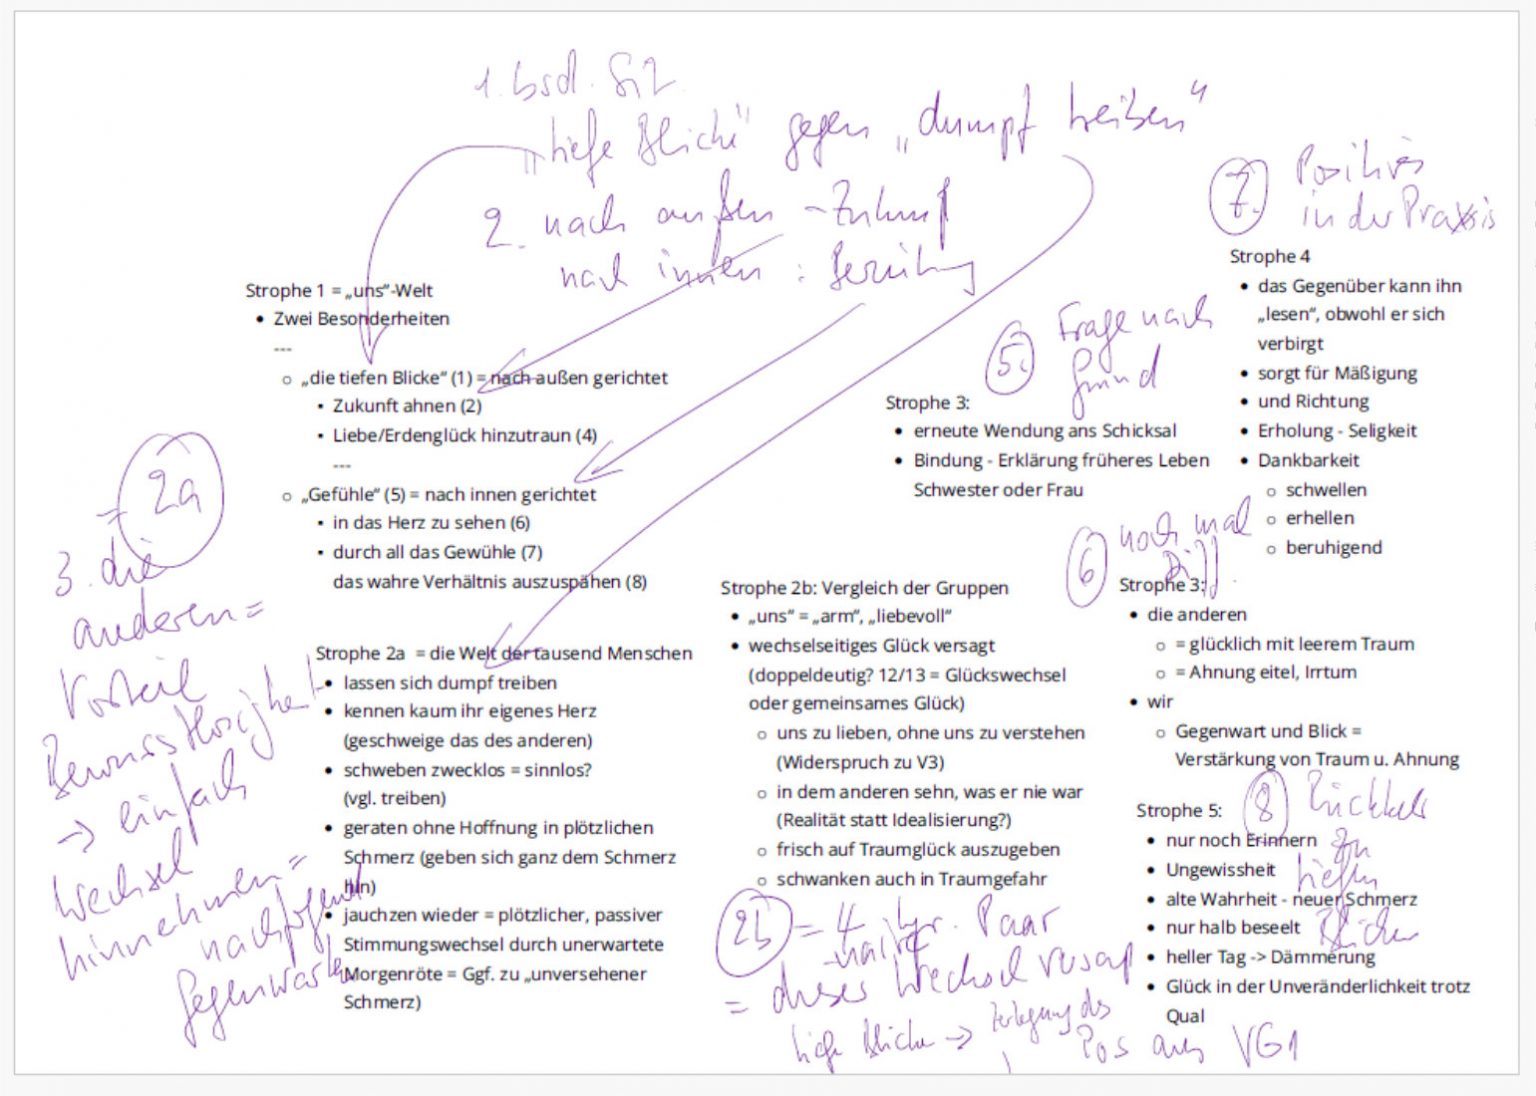 1. bsd. Sit
„tiefe Blicke" gegen „dumpf treiben"
2. nach außen - Zukunft
nach innen : Beziehung
Strophe 1 = „uns“-Welt
• Zwei Besonderheiten
---
○ „die tiefen Blicke“ (1) = nach außen gerichtet
▪ Zukunft ahnen (2)
▪ Liebe/Erdenglück hinzutraun (4)
---
○ „Gefühle“ (5) = nach innen gerichtet
▪ in das Herz zu sehen (6)
▪ durch all das Gewühle (7)
das wahre Verhältnis auszuspähen (8)
= 2a
3. die
anderen =
Vorteil
Bewusstlosigkeit
-> einfach
Wechsel
hinnehmen =
Strophe 2a = die Welt der tausend Menschen
• lassen sich dumpf treiben
• kennen kaum ihr eigenes Herz
(geschweige das des anderen)
• schweben zwecklos = sinnlos?
(vgl. treiben)
• geraten ohne Hoffnung in plötzlichen
Schmerz (geben sich ganz dem Schmerz
hin)
• jauchzen wieder = plötzlicher, passiver
Stimmungswechsel durch unerwartete
Morgenröte = Ggf. zu „unversehener
Schmerz)
Strophe 2b: Vergleich der Gruppen
• „uns“ = „arm“, „liebevoll“
• wechselseitiges Glück versagt
(doppeldeutig? 12/13 = Glückswechsel
oder gemeinsames Glück)
○ uns zu lieben, ohne uns zu verstehen
(Widerspruch zu V3)
○ in dem anderen sehn, was er nie war
(Realität statt Idealisierung?)
○ frisch auf Traumglück auszugeben
○ schwanken auch in Traumgefahr
2b = 4. Paar
= dieser Wechsel versagt
tiefe Blicke -> des
Pos aus VG1
5. Frage nach
Grund
Strophe 3:
• erneute Wendung ans Schicksal
• Bindung - Erklärung früheres Leben
Schwester oder Frau
6 noch mal
Diff.
Strophe 3:
• die anderen
○ = glücklich mit leerem Traum
○ = Ahnung eitel, Irrtum
• wir
○ Gegenwart und Blick =
Verstärkung von Traum u. Ahnung
7. Positives
in der Praxis
Strophe 4
• das Gegenüber kann ihn
„lesen“, obwohl er sich
verbirgt
• sorgt für Mäßigung
• und Richtung
• Erholung - Seligkeit
• Dankbarkeit
○ schwellen
○ erhellen
○ beruhigend
8 Rückkehr
zu
tiefen
Blicken
Strophe 5:
• nur noch Erinnern
• Ungewissheit
• alte Wahrheit - neuer Schmerz
• nur halb beseelt
• heller Tag -> Dämmerung
• Glück in der Unveränderlichkeit trotz
Qual